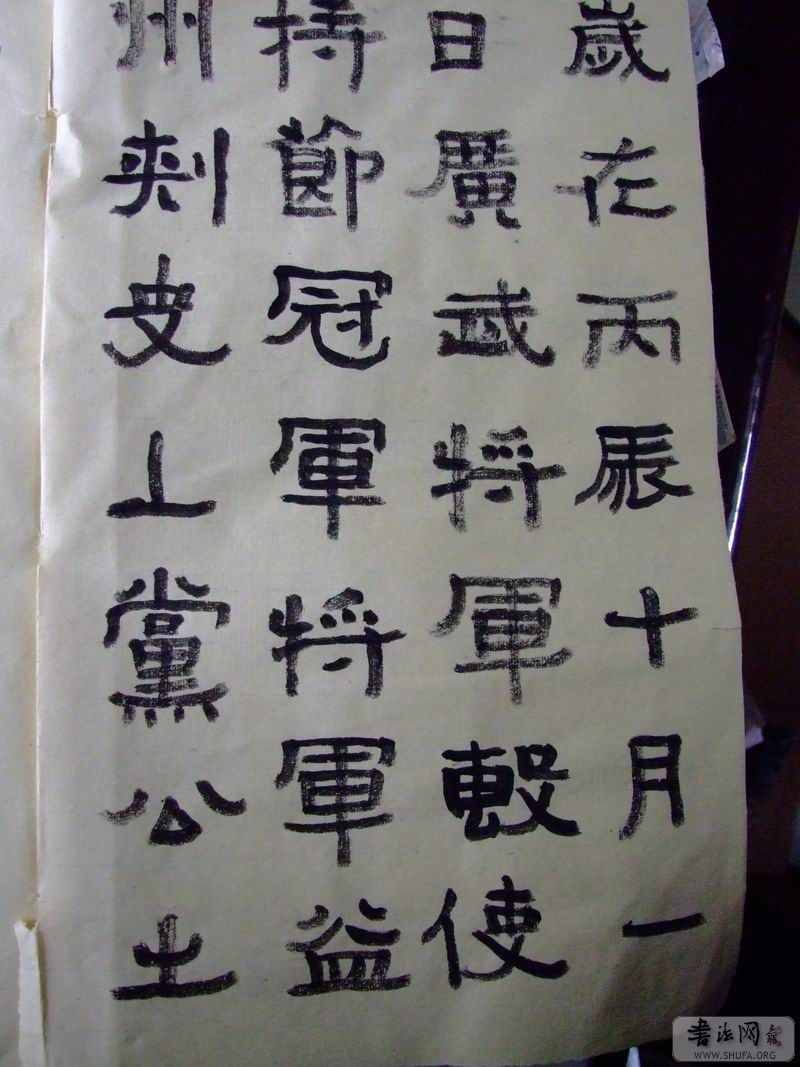 歲在丙辰十月一
日廣武将軍使
持節冠軍将軍益
州刺史上黨公之
書法网
WWW.SHUFA.ORG